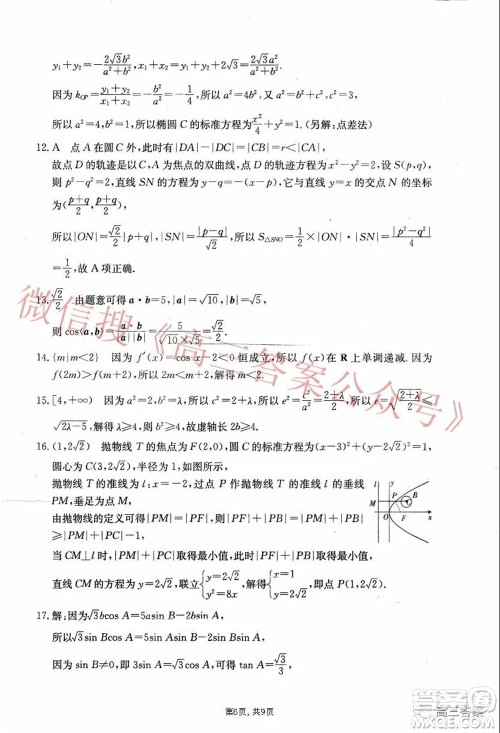 y₁+y₂=-2√3b²/(a²+b²), x₁+x₂=y₁+y₂+2√3=2√3a²/(a²+b²).
因为 k_OP=(y₁+y₂)/(x₁+x₂)=-b²/a²=-1/4, 所以 a²=4b². 又因为 a²=b²+c²,c²=3,
所以 a²=4,b²=1,所以椭圆 C 的标准方程为 x²/4+y²=1.(另解:点差法)
12. A 点 A 在圆 C 外,此时||DA|-|DC||=|CB|=r<|CA|,
故点 D 的轨迹是以 C,A 为焦点的双曲线,点 D 的轨迹方程为 x²-y²=2,设 S(p,q),
则 p²-q²=2,直线 SN 的方程为 y-q=-(x-p),它与直线 y=x 的交点 N 的坐标
为((p+q)/2,(p+q)/2),
所以|ON|=√2/2|p+q|,|SN|=|p-q|/√2,所以 S△SNO=1/2×|ON|·|SN|=|p²-q²|/4=
1/2,故 A 项正确.
13. √2/2 由题意可得 a·b=5,|a|=√10,|b|=√5,
则 cos⟨a,b⟩=a·b/(|a||b|)=5/(√10×√5)=√2/2.
14. {m|m<2} 因为 f′(x)=cos x-2<0 恒成立,所以 f(x)在 R 上单调递减. 因为
f(2m)>f(m+2),所以 2m<m+2,解得 m<2.
15. [4,+∞) 因为 a²=2,b²=λ,所以 c²=2+λ,所以 e²=c²/a²=(2+λ)/2,所以 e=√((2+λ)/2)≤
√(2λ-5),解得 λ≥4,所以 b²≥4,b≥2,故虚轴长 2b≥4.
16. (1,2√2) 抛物线 T 的焦点为 F(2,0),圆 C 的标准方程为(x-3)²+(y-2√2)²=1,
圆心为 C(3,2√2),半径为 1,如图所示,
抛物线 T 的准线为 l:x=-2,过点 P 作抛物线 T 的准线 l 的垂线
PM,垂足为点 M,
由抛物线的定义可得|PM|=|PF|,则|PB|+|PF|=|PB|+
|PM|,
当 CM⊥l 时,|PM|+|PC|取得最小值,此时|PM|+|PB|取得最小值,
直线 CM 的方程为 y=2√2,联立{y=2√2, y²=8x, 解得{x=1, y=2√2, 即点 P(1,2√2).
M
P
B
O
F
x
17. 解:因为√3bcos A=5asin B-2√3asin B,
所以√3sin Bcos A=5sin Asin B-2√3sin Asin B,
因为 sin B≠0,所以√3cos A=
第6页,共9页
微信搜《高三答案公众号》
高三答案